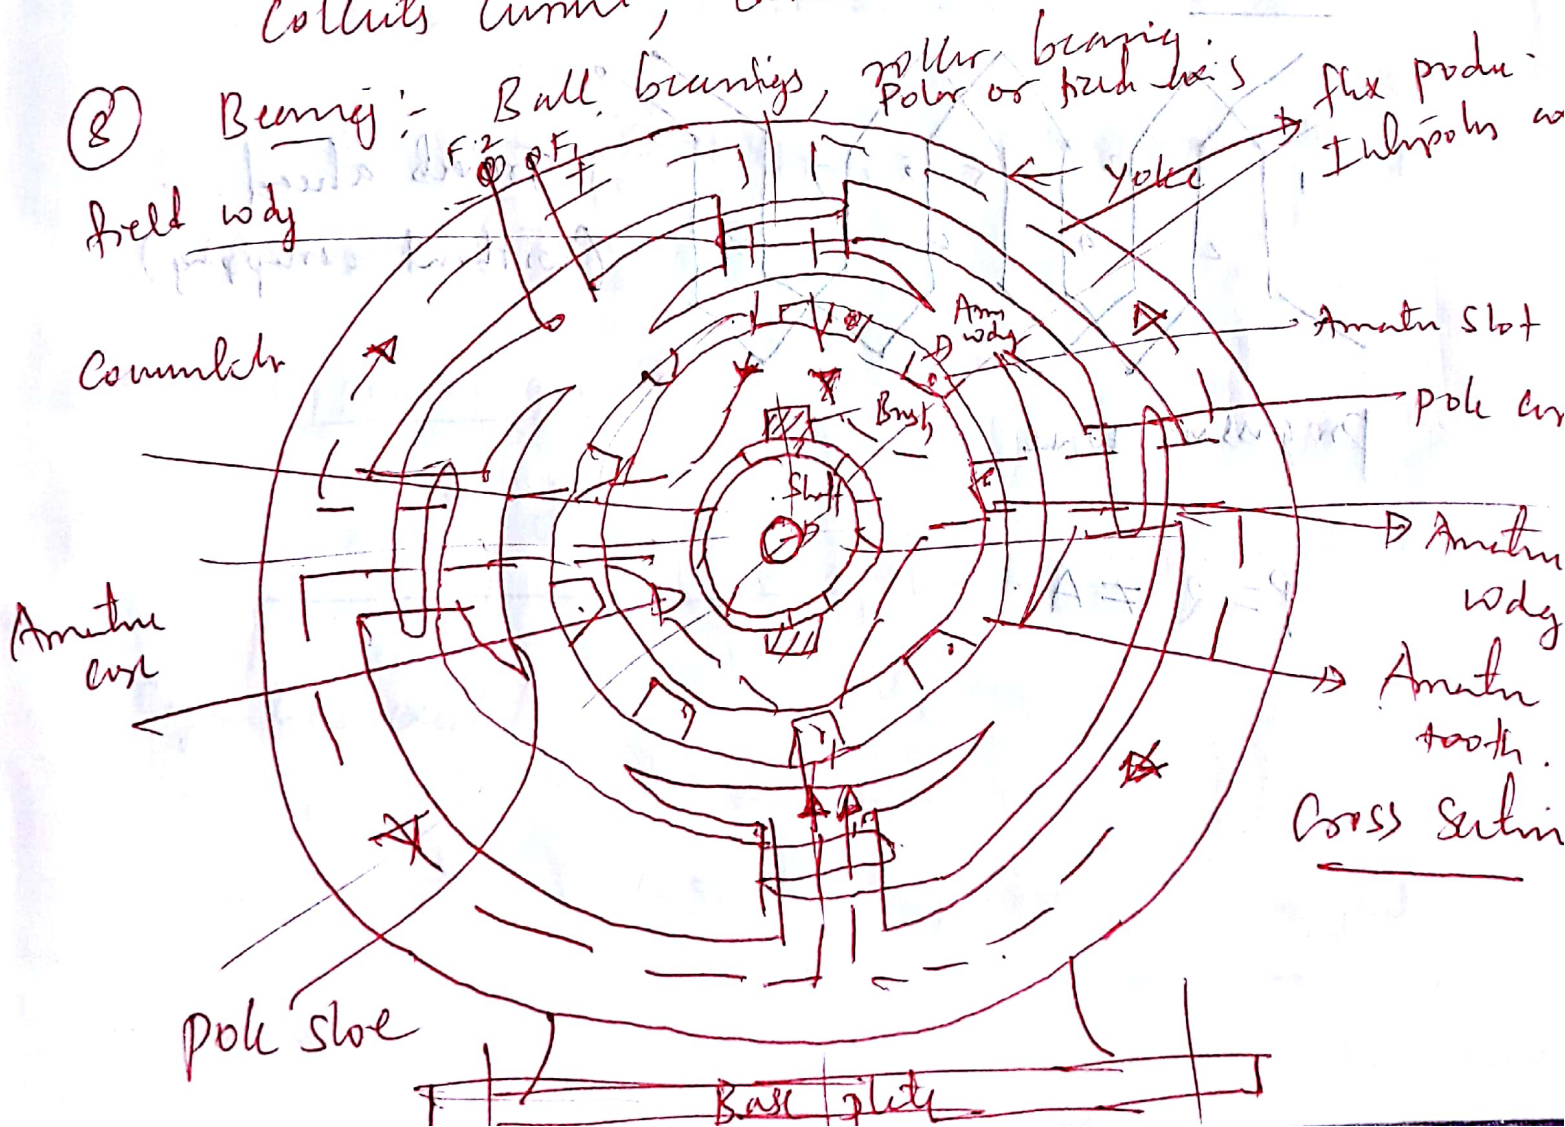 Collects Current,
⑧ Bearing :- Ball bearings, roller bearing.
Polar or field axis
flux produ
Interpoles
F2 F1
Yoke
field wdg
Arm
wdg
Armature Slot
Commutator
pole cor
Brush
Shaft
Armature
wdg
Armature
core
Armature
tooth.
Cross Section
pole shoe
Base plate